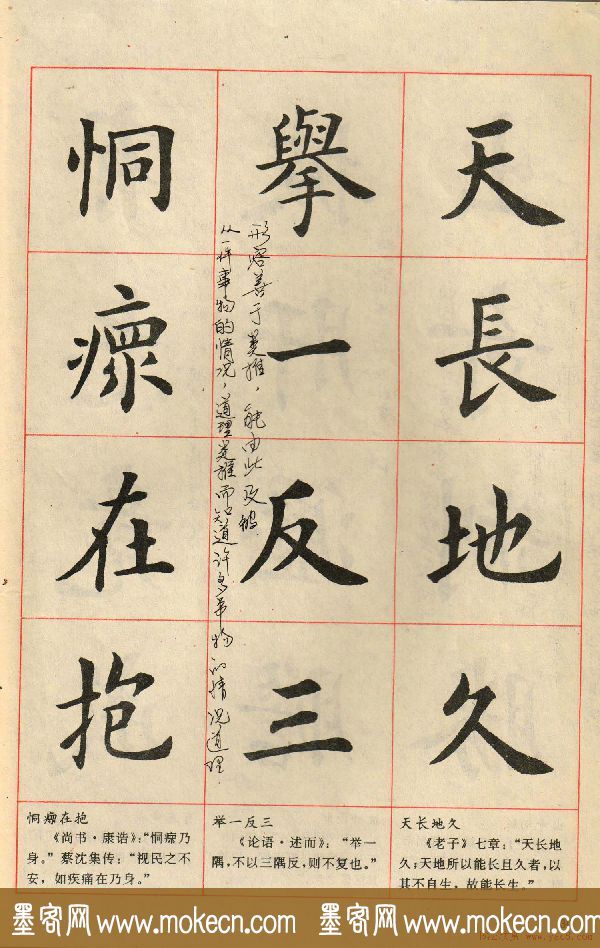 天長地久
舉一反三
恫瘝在抱
形容善于类推，能由此及彼
从一件事物的情况，道理类推而知道许多事物的情况道理.
恫瘝在抱
《尚书·康诰》：“恫瘝乃
身。”蔡沈集传：“视民之不
安，如疾痛在乃身。”
举一反三
《论语·述而》：“举一
隅，不以三隅反，则不复也。”
天长地久
《老子》七章：“天长地
久；天地所以能长且久者，以
其不自生，故能长生。”
墨客网 www.mokecn.com 墨客网 www.mokecn.com